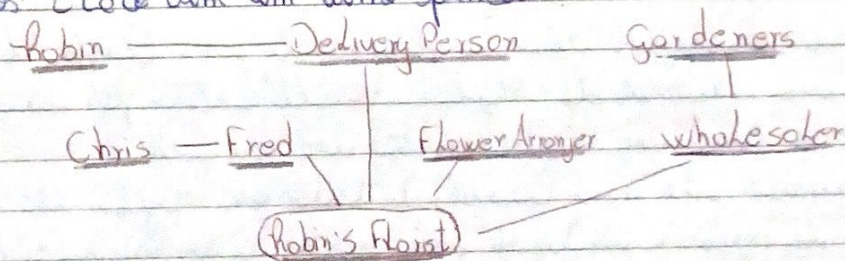 Robin Delivery Person Gardeners
Chris Fred Flower Arranger wholesaler
Robin's Florist